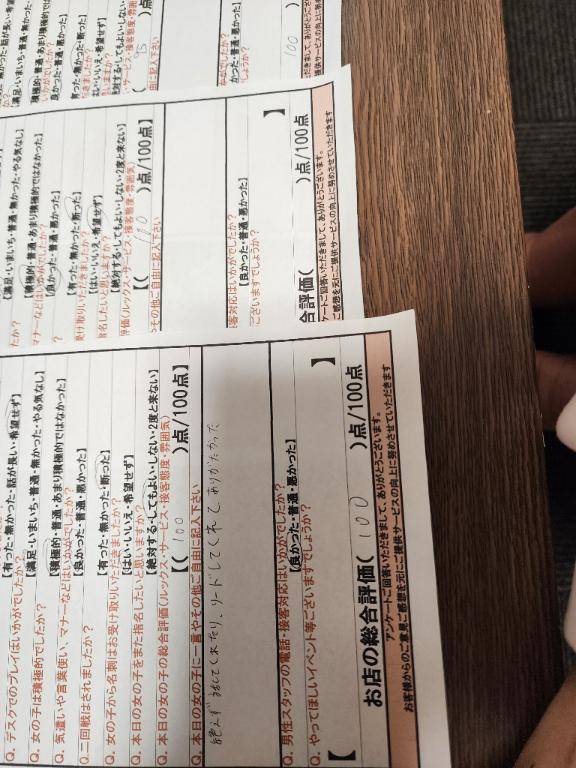 Q. デスクでのプレイはいかがでしたか？【有った・無かった・話が長い・希望せず】
Q. 女の子は積極的でしたか？【満足・いまいち・普通・無かった・やる気なし】
Q. 気遣いや言葉使い、マナーなどはいかがでしたか？【積極的・普通・あまり積極的ではなかった】
Q. 二回戦はされましたか？【良かった・普通・悪かった】
Q. 女の子から名刺はお受け取りいただきましたか？【有った・無かった・断った】
Q. 本日の女の子をまた指名したいと思いますか？【はい・いいえ・希望せず】
Q. 本日の女の子の総合評価（ルックス・サービス・接客態度・雰囲気）【絶対する・してもよい・しない・2度と来ない】
Q. 本日の女の子に一言やその他ご自由に記入下さい【（ 100 ）点/100点】
してくれたり、リードしてくれて ありがたかった
Q. 男性スタッフの電話・接客対応はいかがでしたか？【良かった・普通・悪かった】
Q. やってほしいイベント等ございますでしょうか？
【 】
お店の総合評価（ 100 ）点/100点
アンケートご回答いただきまして、ありがとうございます。
お客様からのご意見ご感想を元にご提供サービスの向上に努めさせていただきます
【満足・いまいち・普通・無かった・やる気なし】
【積極的・普通・あまり積極的ではなかった】
マナーなどはいかがでしたか？
【良かった・普通・悪かった】
受け取りいただきましたか？【有った・無かった・断った】
指名したいと思いますか？【はい・いいえ・希望せず】
評価（ルックス・サービス・接客態度・雰囲気）【絶対する・してもよい・しない・2度と来ない】
その他ご自由に記入下さい【（ 100 ）点/100点】
客対応はいかがでしたか？【良かった・普通・悪かった】
ございますでしょうか？
】
合評価（ ）点/100点
ケートご回答いただきまして、ありがとうございます。
ご感想を元にご提供サービスの向上に努めさせていただきます
【満足・いまいち・普通・無かった
【積極的・普通・あまり積極的
【良かった・普通・悪かった】
（ 95 ）点
（ 100 ）